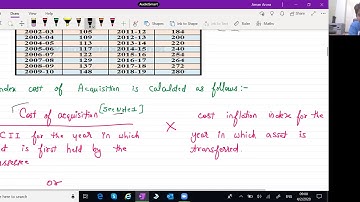 AudioSmart
Aman Arora
2002-03 105 2011-12 184
2003-04 109
2004-05 113
2005-06 117 240
2006-07 122 2015-16 254
2007-08 129 2016-17 264
2008-09 137 2017-18 272
2009-10 148 2018-19 280
ndex cost of Acquisition is calculated as follows:-
Cost of acquisition [See note 1]
CII for the year in which
et is first held by the
assessee
× cost inflation index for the
year in which asset is
transferred.
or
here to search
ENG
4/2/2020